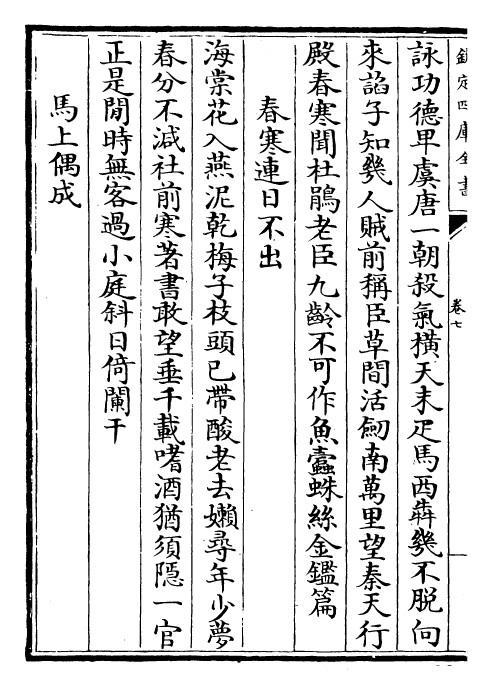 欽定四庫全書
卷七
詠功德卑虞唐一朝殺氣橫天末疋馬西犇幾不脫向
來諂子知幾人賊前稱臣草間活劒南萬里望秦天行
殿春寒聞杜鵑老臣九齡不可作魚蠹蛛絲金鑑篇
春寒連日不出
海棠花入燕泥乾梅子枝頭已帶酸老去嬾尋年少夢
春分不減社前寒著書敢望垂千載嗜酒猶須隱一官
正是閒時無客過小庭斜日倚闌干
馬上偶成